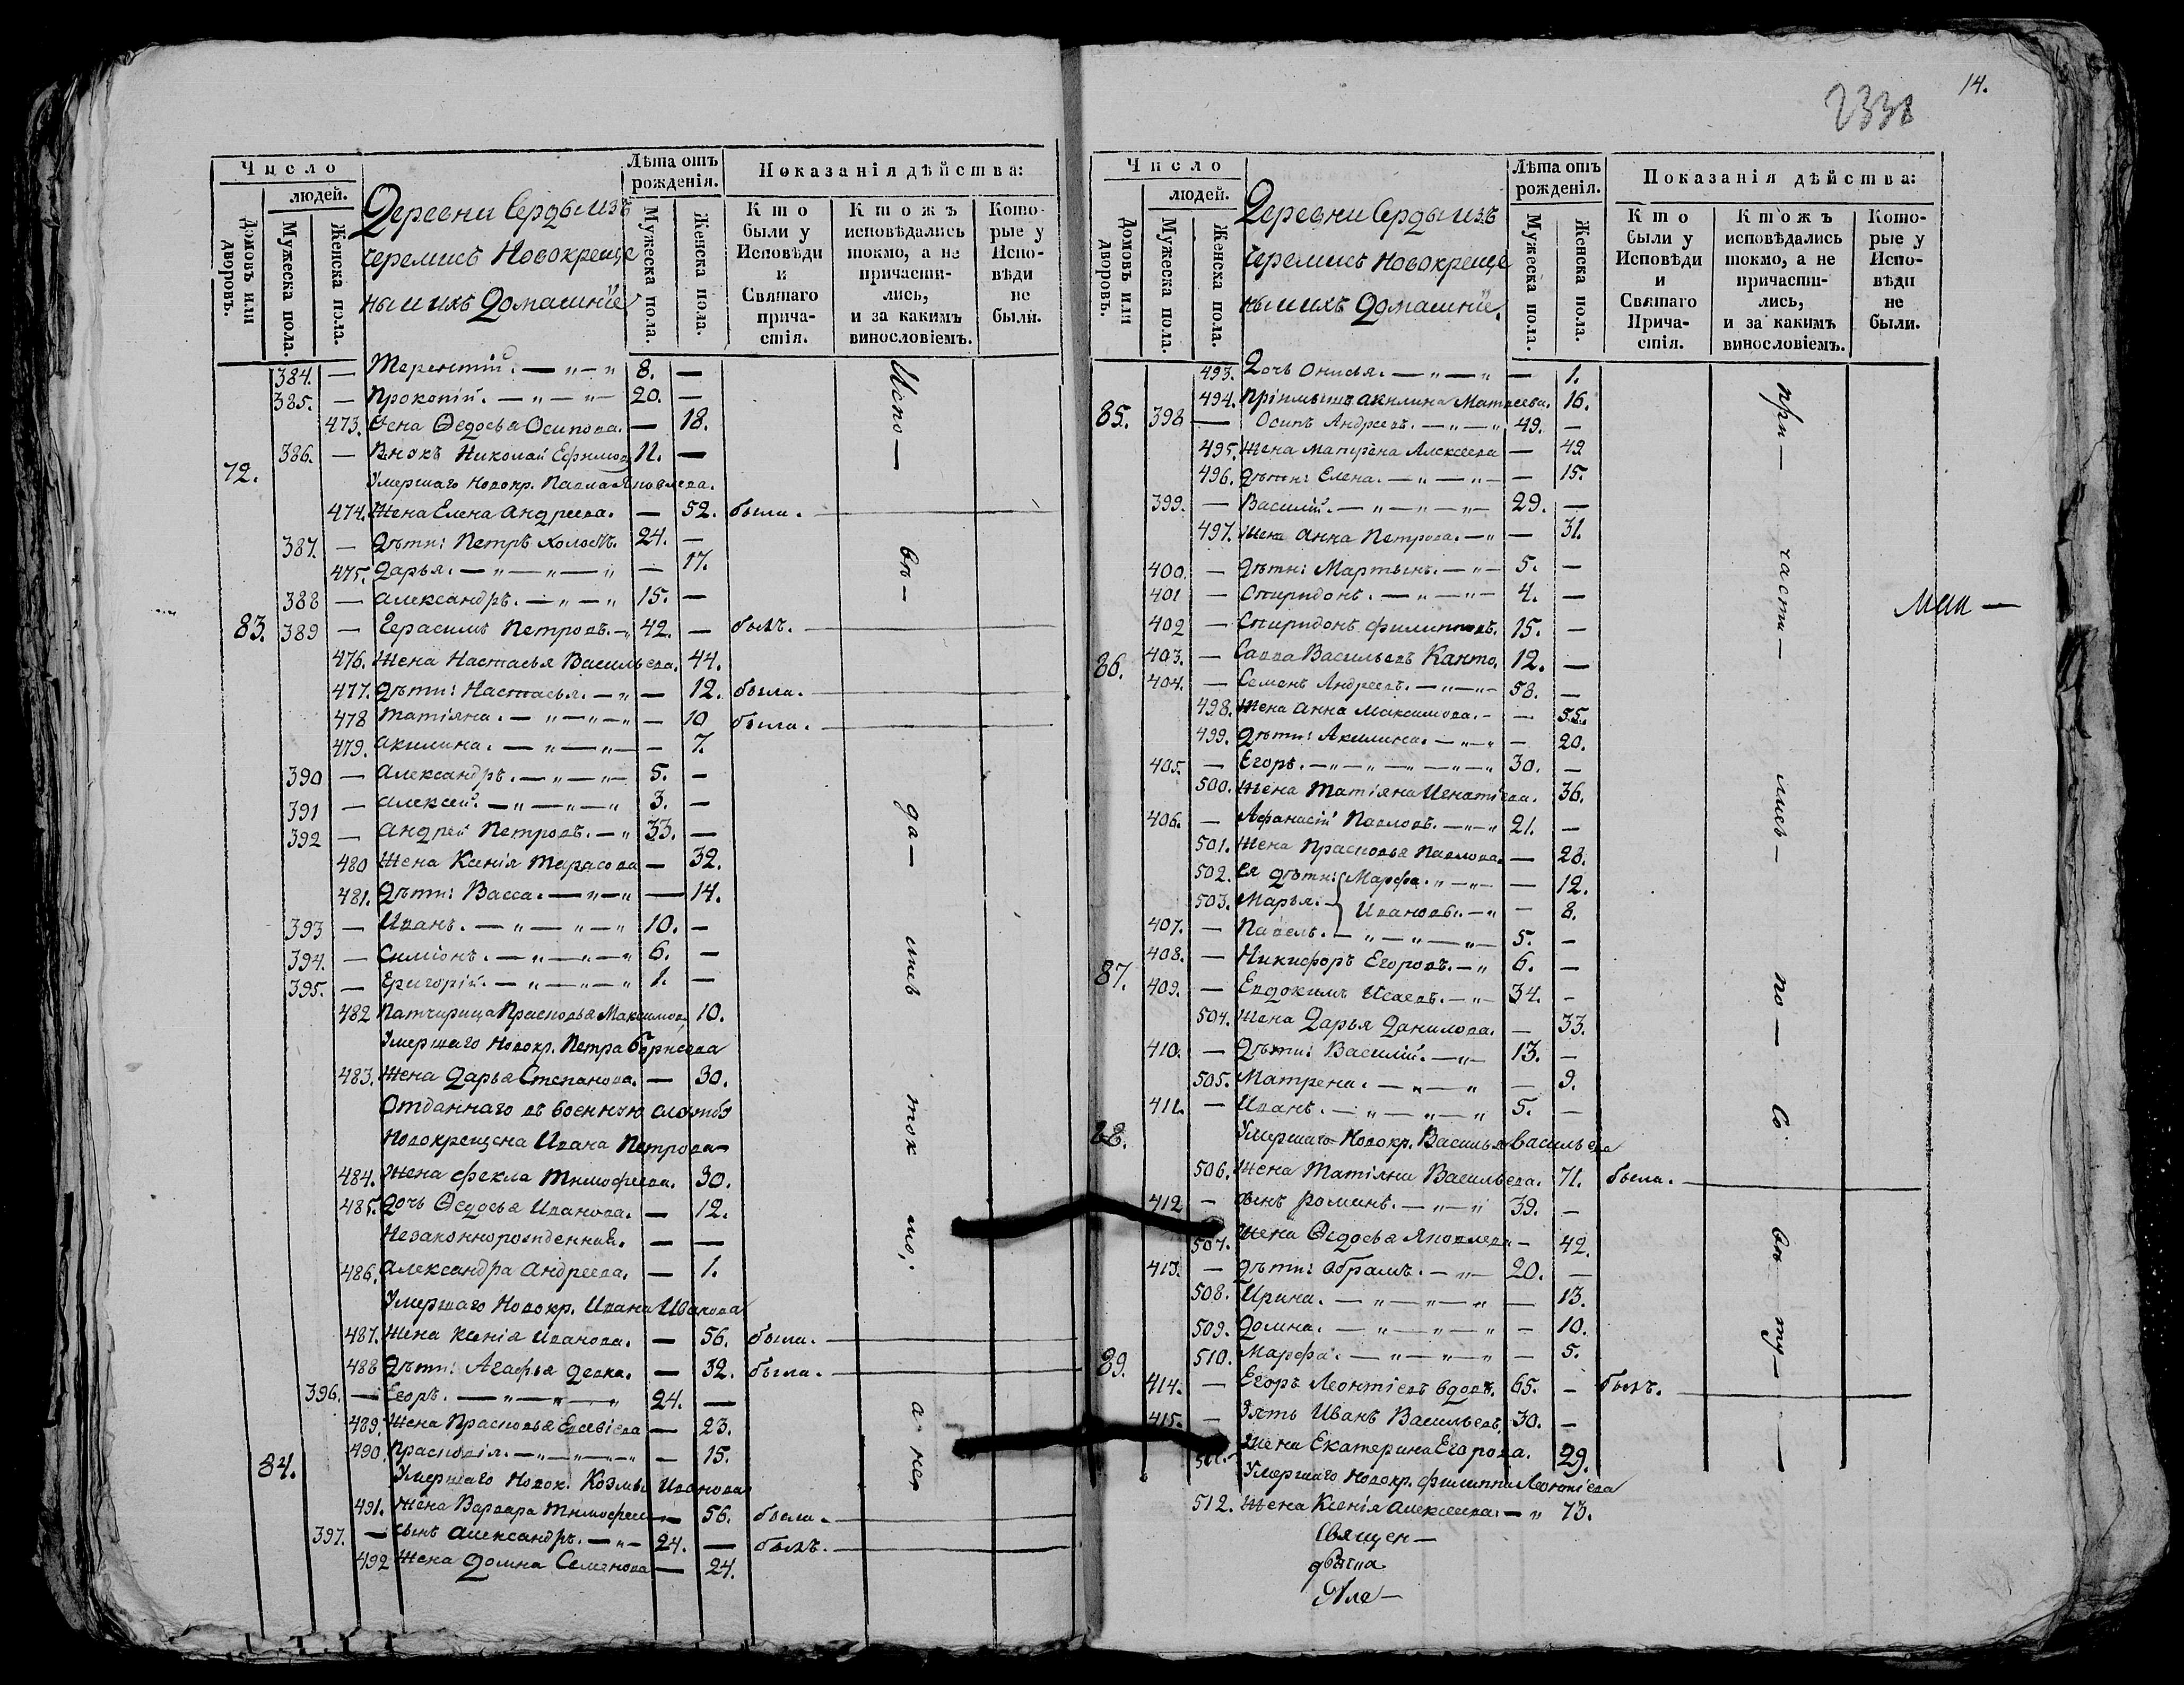 Число
людей.
Домовъ или дворовъ.
Мужеска пола.
Женска пола.
Деревни Серды изъ
Черемисъ Новокреще
ны и ихъ Домашніе
Лѣта отъ рожденія.
Мужеска пола.
Женска пола.
Показанія дѣйства:
Кто были у Исповѣди и Святаго причастія.
Ктожъ исповѣдались токмо, а не причастились, и за какимъ винословіемъ.
Которые у Исповѣди не были.
384. — Терентій. — „ — „ 8. —
385. — Прокопій. — „ — „ — 20. —
473. Жена Ѳедосья Осипова. — 18.
386. — Внукъ Николай Ефимов 11. —
72. Умершаго Новокр. Павла Яковлева.
474. Жена Елена Андреева. — 52. была.
387. — Дѣти: Петръ холостъ. 24. —
475. Дарья. — „ — „ — „ — 17.
388 — Александръ. — „ — „ 15. —
83. 389 — Герасимъ Петровъ. — „ 42. — былъ.
476. Жена Настасья Васильева. 44.
477. Дѣти: Настасья. — „ — 12. была.
478 Татіяна. — „ — „ — „ — 10 была.
479. Акилина. — „ — „ — — 7.
390 — Александръ. — „ — „ — 5. —
391 — Алексей. — „ — „ — „ 3. —
392 — Андрей Петровъ. — „ 33. —
480 Жена Ксенія Тарасова — 32.
481. Дѣти: Васса. — „ — „ — 14.
393 — Иванъ. — „ — „ — „ 10. —
394. — Симіонъ. — „ — „ — „ 6. —
395. — Григорій. — „ — „ — „ 1. —
482 Патчирица Прасковья Максимов 10.
Умершаго Новокр. Петра Борисова
483. Жена Дарья Степанова. — 30.
Отданнаго въ военную службу
Новокрещена Ивана Петрова
484. Жена Фекла Тимофеева. 30.
485. Дочь Ѳедосья Иванова. — 12.
Незаконнорожденная. — —
486. Александра Андреева. — 1.
Умершаго Новокр. Ивана Иванова
487. Жена Ксенія Иванова. — 56. была.
488 Дѣти: Агафья девка. — 32. была.
396. — Егоръ. — „ — „ — „ 24. —
489. Жена Прасковья Евсевіева — 23.
490. Прасковія. — „ — „ — „ — 15.
84. Умершаго Новок. Козмы Иванова
491. Жена Варвара Тимофеев — 56. была.
397. — сынъ Александръ. — „ — 24. — былъ.
492 Жена Домна Семенова — 24.
Испо — вѣ — да — лисъ ток мо, а не
14.
2338
Число
людей.
Домовъ или дворовъ.
Мужеска пола.
Женска пола.
Деревни Серды изъ
Черемисъ Новокреще
ны и ихъ Домашніе.
Лѣта отъ рожденія.
Мужеска пола.
Женска пола.
Показанія дѣйства:
Кто были у Исповѣди и Святаго Причастія.
Ктожъ исповѣдались токмо, а не причастились, и за какимъ винословіемъ.
Которые у Исповѣди не были.
493. Дочь Онисья. — „ — „ — 1.
494. Пріимышъ Акилина Матвеева. 16.
85. 398 — Осипъ Андреевъ. — „ — „ 49. —
495. Жена Матрена Алексеева — 42
496. Дѣти: Елена. — „ — „ — — 15.
399. — Василій. — „ — „ — „ — 29. —
497. Жена Анна Петрова. — „ — 31.
400. — Дѣти: Мартынъ. — „ — 5. —
401 — Спиридонъ. — „ — „ — 4. —
402 — Спиридонъ Филиповъ. 15. —
403. — Савва Васильевъ Канто. 12. —
86. 404. — Семенъ Андреевъ. — „ — „ — 58. —
498. Жена Анна Максимова. — — 55.
499. Дѣти: Акилина. — „ — „ — 20.
405. — Егоръ. — „ — „ — „ — „ — „ 30. —
500. Жена Татіяна Игнатіева. 36.
406. — Афанасій Павловъ. — „ — „ 21. —
501. Жена Прасковья Павлова. — 28.
502. Ея дѣти: Марфа. „ — „ — — 12.
503. Марья. — Ивановы. — „ — 8.
407. — Павелъ. — „ — „ — „ — 5. —
408. — Никифоръ Егоровъ. — „ 6. —
87. 409. — Евдокимъ Исаевъ. — „ — 34. —
504. Жена Дарья Данилова. — 33.
410. — Дѣти: Василій. — „ — 13. —
505. Матрена. — „ — „ — 9.
411. — Иванъ. — „ — „ — „ 5. —
88. Умершаго Новокр. Василья Васильева
506. Жена Татіяна Васильева. 71. была.
412 — сынъ Романъ. — „ — „ 39. —
507. Жена Ѳедосья Яковлева — 42.
413. — Дѣти: Абрамъ. — „ — 20. —
508. Ирина. — „ — „ — „ — 13.
509. Домна. — „ — „ — „ — 10.
510. Марфа. — „ — „ — „ — 5.
89. 414. — Егоръ Леонтіевъ вдовъ. 65. — былъ.
415. — Зять Иванъ Васильевъ. 30. —
Жена Екатерина Егорова. 29.
Умершаго Новокр. Филиппа Леонтіева
512. Жена Ксенія Алексеева. — „ 73.
при — части — лись — по — Со вѣ ту —
Мам —
Священ —
Але —